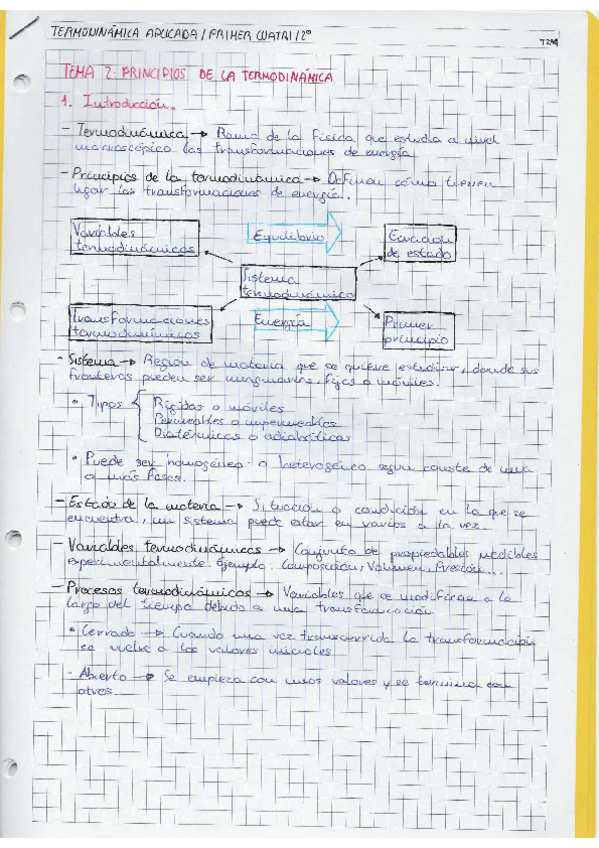 TERMODINÁMICA APLICADA / PRIMER CUATRI / 2º
TEMA 2: PRINCIPIOS DE LA TERMODINÁMICA
1. Introducción.
- Termodinámica → Rama de la Física que estudia a nivel
macroscópico las transformaciones de energía
- Principios de la termodinámica → Definen cómo tienen
lugar las transformaciones de energía.
Variables
termodinámicas
Equilibrio
Ecuación
de estado
Sistema
termodinámico
Transformaciones
termodinámicas
Energía
Primer
principio
- Sistema → Región de materia que se quiere estudiar, donde sus
fronteras pueden ser imaginarias, fijas o móviles.
• Tipos
Rígidas o móviles
Permeables o impermeables
Diatérmicas o adiabáticas
• Puede ser homogéneo o heterogéneo según conste de una
o más fases.
- Estado de la materia → Situación o condición en la que se
encuentra, un sistema puede estar en varios a la vez.
- Variables termodinámicas → Conjunto de propiedades medibles
experimentalmente. Ejemplo: Composición, Volumen, Presión...
- Procesos termodinámicos → Variables que se modifican a lo
largo del tiempo debido a una transformación
• Cerrado → Cuando una vez transcurrida la transformación
se vuelve a los valores iniciales
- Abierto → Se empieza con unos valores y se termina con
otros.